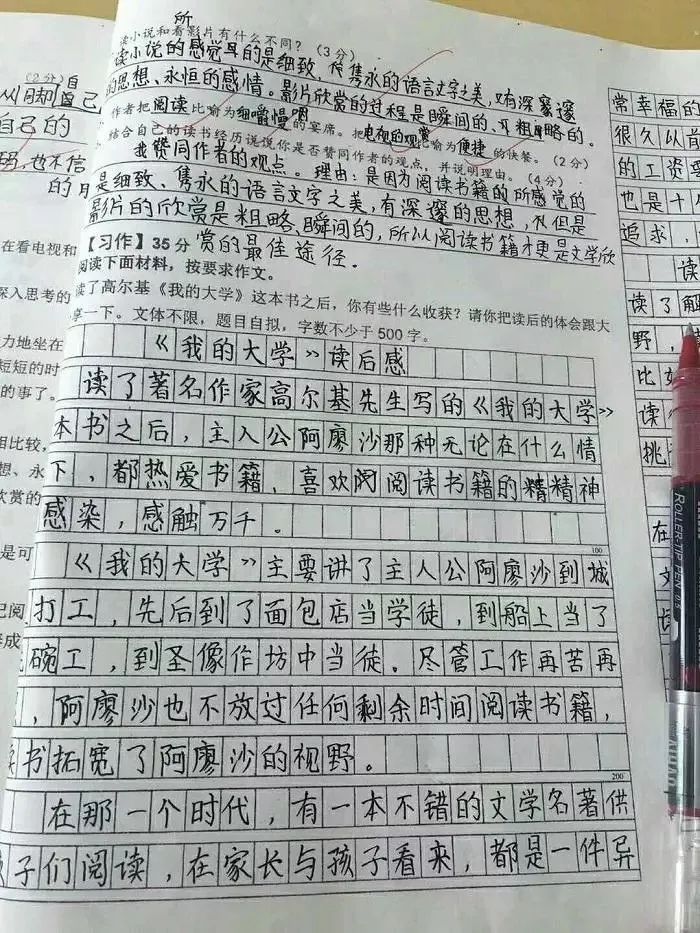 (2分)
自己
自己的
也不信
在看电视和
深入思考的
力地坐在
短短的时
的事了。
相比较,
想、永
欣赏的
是可
已阅
所
读小说和看影片有什么不同?(3分)
读小说的感觉是的是细致、隽永的语言文字之美,有深邃
的思想、永恒的感情。影片欣赏的过程是瞬间的、粗略的。
作者把阅读比喻为细嚼慢咽的宴席。把电视的观赏比喻为便捷的快餐。(2分)
结合自己的读书经历说说你是否赞同作者的观点,并说明理由。(4分)
我赞同作者的观点。理由:是因为阅读书籍的所感觉的
是细致、隽永的语言文字之美,有深邃的思想,但是
影片的欣赏是粗略、瞬间的,所以阅读书籍才更是文学欣
赏的最佳途径.
【习作】35分
阅读下面材料,按要求作文。
读了高尔基《我的大学》这本书之后,你有些什么收获?请你把读后的体会跟大
享一下。文体不限,题目自拟,字数不少于500字。
《我的大学》读后感
读了著名作家高尔基先生写的《我的大学》
本书之后,主人公阿廖沙那种无论在什么情
下,都热爱书籍,喜欢阅读书籍的精神
感染,感触万千。
100
《我的大学》主要讲了主人公阿廖沙到城
打工,先后到了面包店当学徒,到船上当了
碗工,到圣像作坊中当徒。尽管工作再苦再
,阿廖沙也不放过任何剩余时间阅读书籍,
书拓宽了阿廖沙的视野。
200
在那一个时代,有一本不错的文学名著供
子们阅读,在家长与孩子看来,都是一件异
常幸福的
很久以前
的工资要
也是十
追求,
读
读了解
野,
比如
读
挑
在
文
ROLLER-TIP PEN 0.5